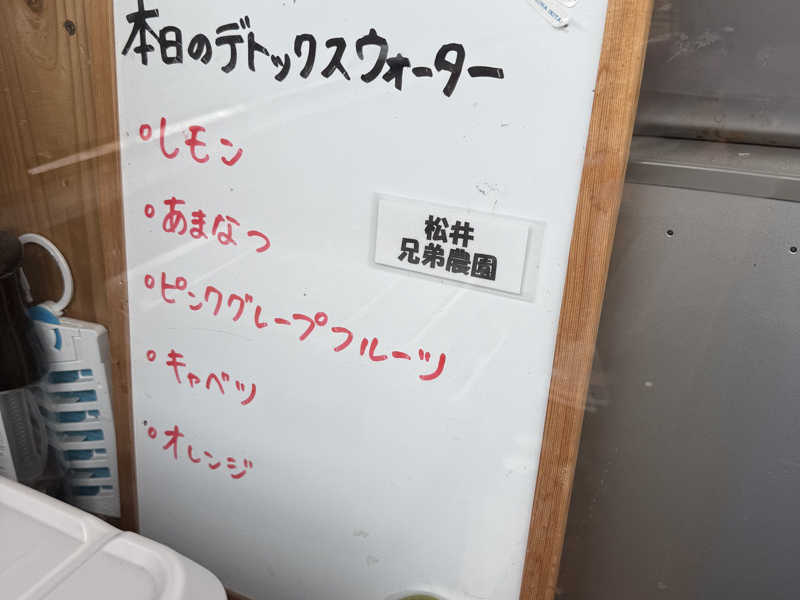 本日のデトックスウォーター
・レモン
・あまなつ
・ピンクグレープフルーツ
・キャベツ
・オレンジ
松井
兄弟農園